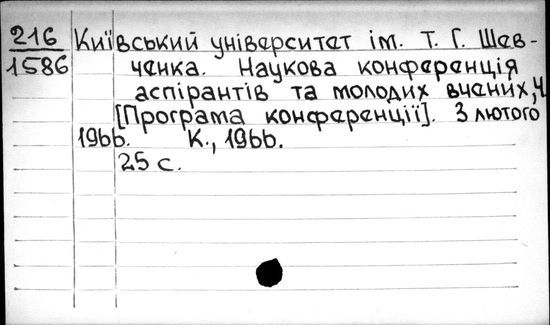 216 Київський університет ім. Т. Г. Шев-
1586 ченка. Наукова конференція
аспірантів та молодих вчених, Ч.
[Програма конференції]. 3 лютого
1966. К., 1966.
25 с.